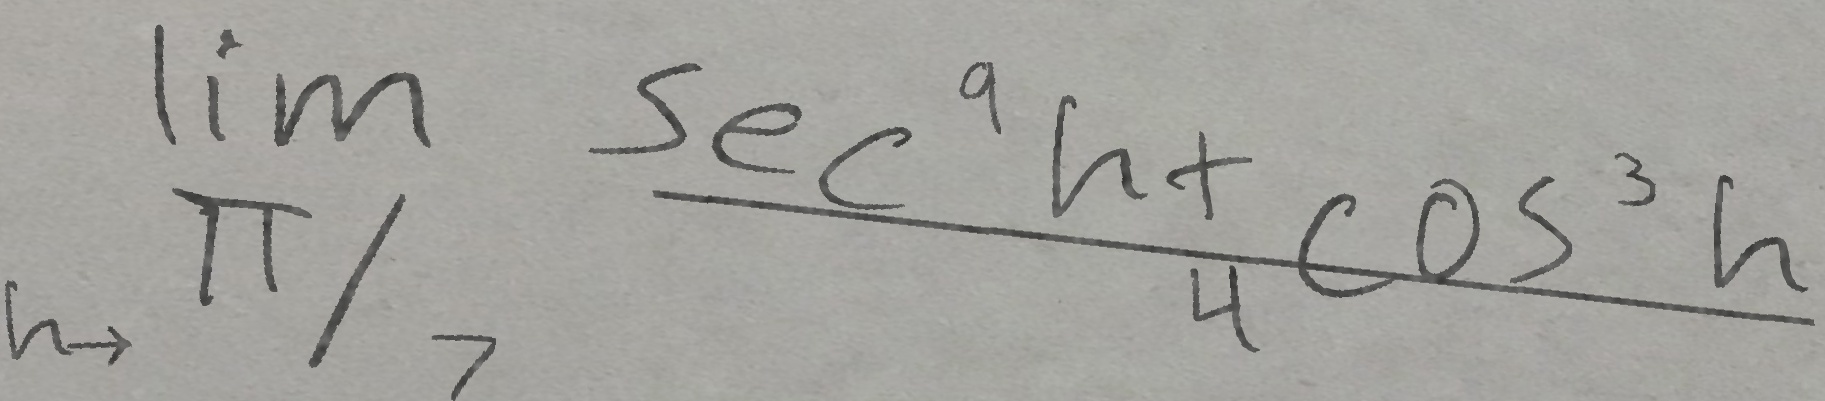 lim h→ π/7 sec⁹h + cos³h
4